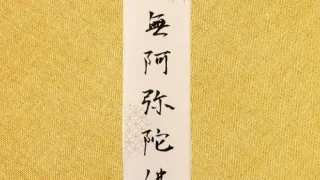 無阿弥陀